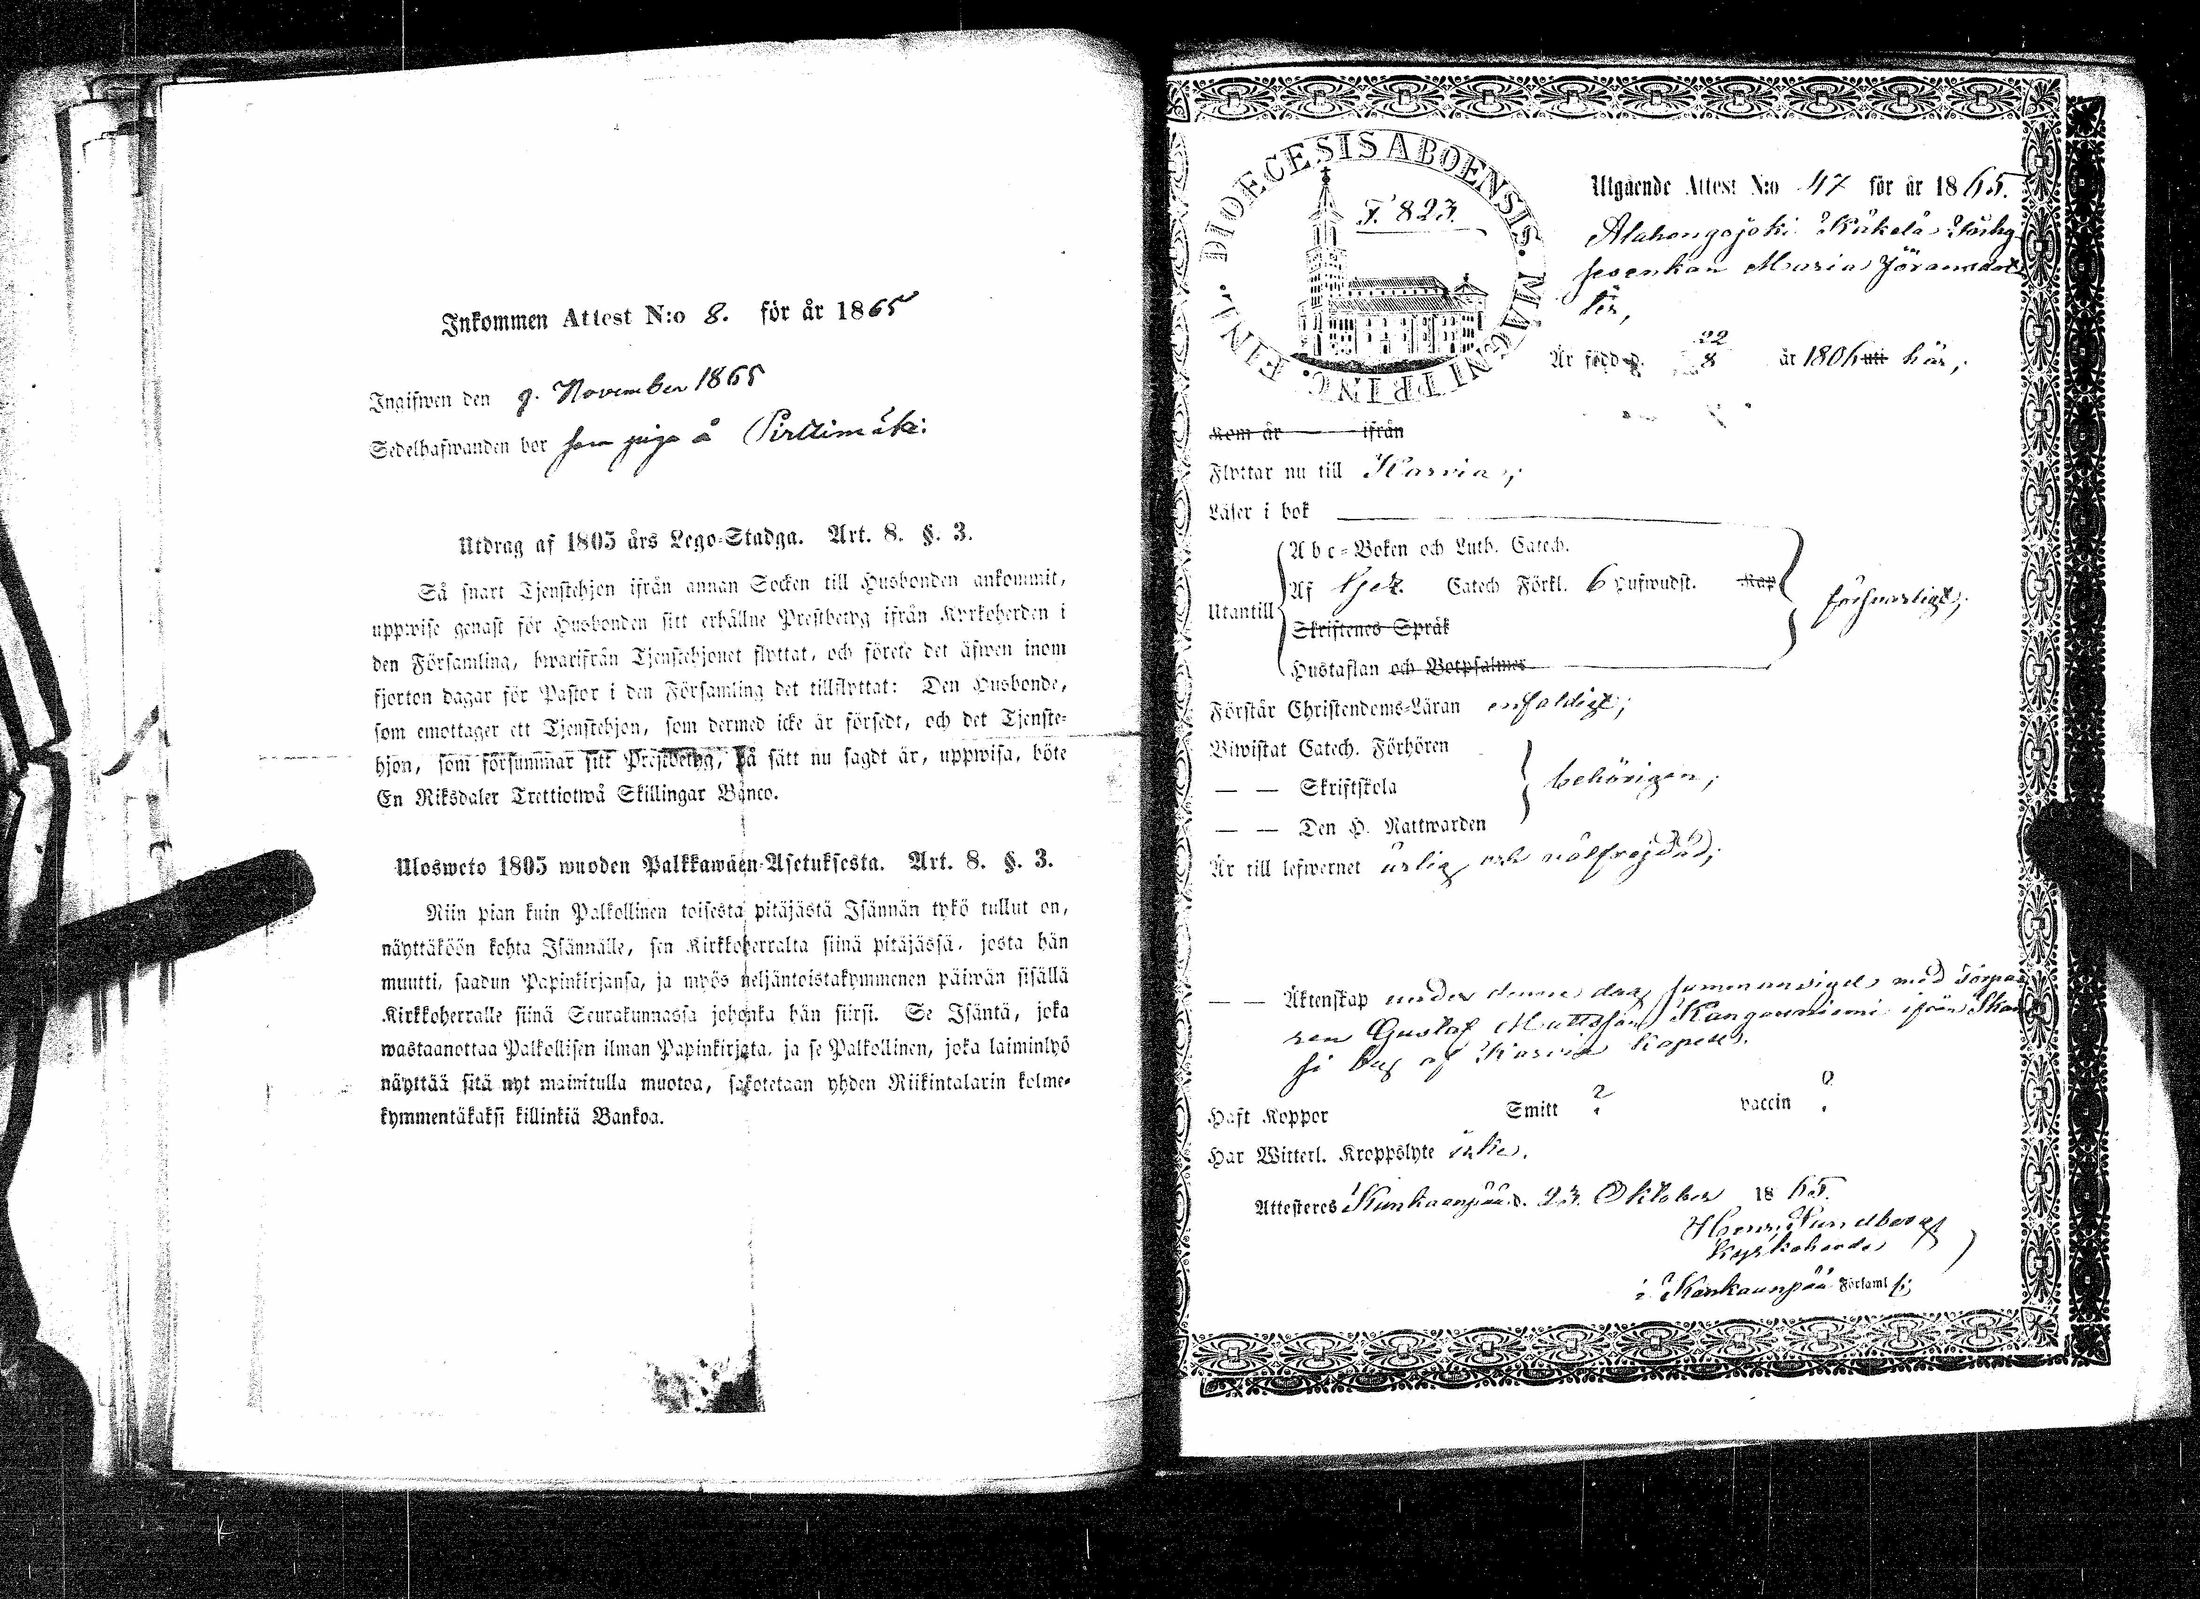 Inkommen Attest N:o 8. för år 1865
Ingifwen den 9. November 1865
Sedelhafwanden bor som piga å Pirttimäki
Utdrag af 1805 års Lego-Stadga. Art. 8. §. 3.
Så snart Tjenstehjon ifrån annan Socken till Husbonden ankommit,
uppwise genast för Husbonden sitt erhållne Prestbetyg ifrån Kyrkoherden i
den Församling, hwarifrån Tjenstehjonet flyttat, och förete det äfwen inom
fjorton dagar för Pastor i den Församling det tillflyttat: Den Husbonde,
som emottager ett Tjenstehjon, som dermed icke är försedt, och det Tjenste-
hjon, som försummar sitt Prestbetyg, på sätt nu sagdt är, uppwisa, böte
En Riksdaler Trettiotwå Skillingar Banco.
Ulosweto 1805 wuoden Palkkawäen-Asetuksesta. Art. 8. §. 3.
Niin pian kuin Palkollinen toisesta pitäjästä Isännän tykö tullut on,
näyttäköön kohta Isännälle, sen Kirkkoherralta siinä pitäjässä, josta hän
muutti, saadun Papinkirjansa, ja myös neljäntoistakymmenen päiwän sisällä
Kirkkoherralle siinä Seurakunnassa johonka hän siirsi. Se Isäntä, joka
wastaanottaa Palkollisen ilman Papinkirjata, ja se Palkollinen, joka laiminlyö
näyttää sitä nyt mainitulla muotoa, sakotetaan yhden Riikintalarin kolme-
kymmentäkaksi killinkiä Bankoa.
DIOECESIS ABOENSIS. MAGNI PRINC. FINL.
F. 823.
Utgående Attest N:o 47 för år 1865.
Alahongojoki Kirkelä
Maria Jöransdot
ter,
Är född d. 22/8 år 1806 uti här,
Kom år ifrån
Flyttar nu till Karvia,
Läser i bok
Abc-Boken och Luth. Catech.
Utantill Af Catech Förkl. 6 Hufwudst. Kap försvarligt;
Skriftenes Språk
Hustaflan och Botpsalmer
Förstår Christendoms-Läran enfaldigt;
Biwistat Catech. Förhören
— — Skriftskola behörigen;
— — Den H. Nattwarden
Är till lefwernet ärlig och välfrejdad;
— — Äktenskap under denna dag sammanvigd med Torpa
ren Gustaf Mattsson Kangasniemi ifrån
si by af Karvia Kapell.
Haft Koppor Smitt ? vaccin ?
Har Witterl. Kroppslyte icke.
Attesteres Kankaanpää d. 23. Oktober 1865.
Henr. Sundberg
Kyrkoherde
i Kankaanpää Församl